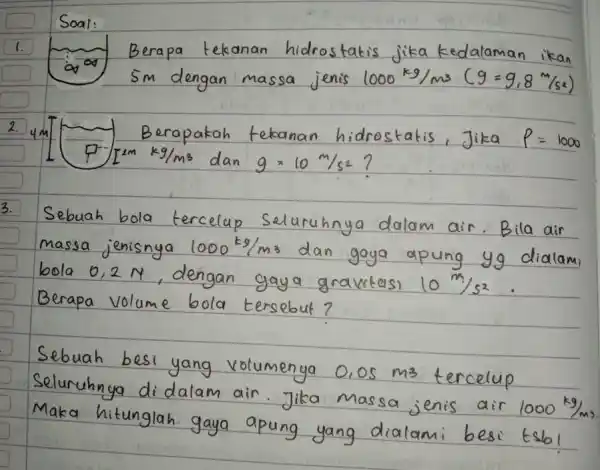 Soal:
1. Berapa tekanan hidrostatis jika kedalaman ikan
5m dengan massa jenis 1000 kg/m3 (g = 9,8 m/s2)
2. 4M Berapakah tekanan hidrostatis, Jika ρ = 1000
P 2m kg/m3 dan g = 10 m/s2 ?
3. Sebuah bola tercelup Seluruhnya dalam air. Bila air
massa jenisnya 1000 kg/m3 dan gaya apung yg dialami
bola 0,2 N, dengan gaya gravitasi 10 m/s2 .
Berapa volume bola tersebut ?
Sebuah besi yang volumenya 0,05 m3 tercelup
Seluruhnya di dalam air. Jika massa jenis air 1000 kg/m3
Maka hitunglah gaya apung yang dialami besi tsb!